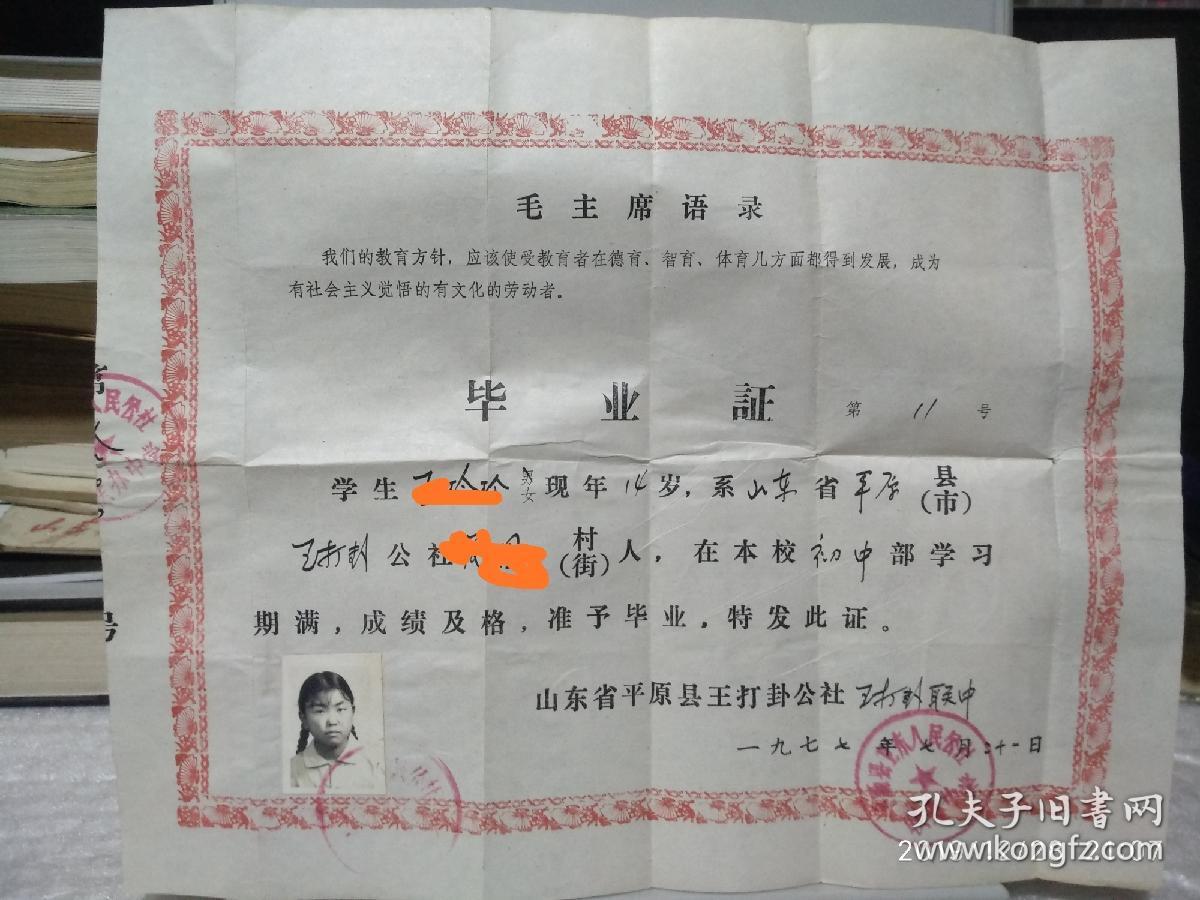 毛主席语录
我们的教育方针，应该使受教育者在德育、智育、体育几方面都得到发展，成为
有社会主义觉悟的有文化的劳动者。
毕业証 第 11 号
学生 男女 现年 14 岁，系 山东 省 平原 县(市)
王打卦 公社 村(街) 人，在本校 初中 部学习
期满，成绩及格，准予毕业，特发此证。
山东省平原县王打卦公社 王打卦联中
一九七七年七月二十一日
人民公社
号
孔夫子旧书网
www.kongfz.com